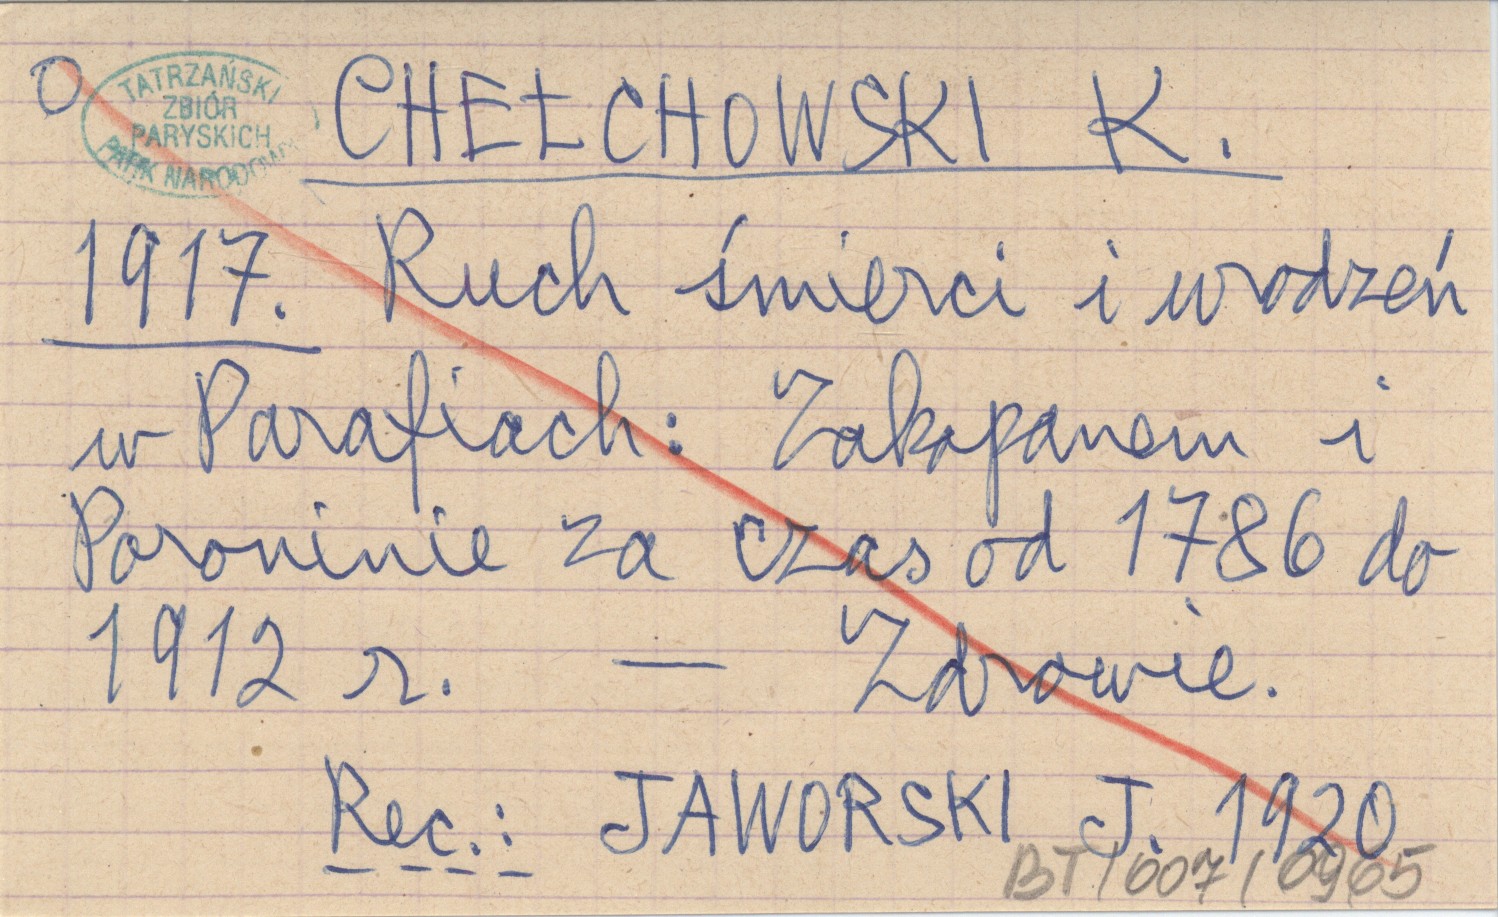 O
TATRZAŃSKI
ZBIÓR
PARYSKICH
PARK NARODOWY
CHEŁCHOWSKI K.
1917. Ruch śmierci i urodzeń
w Parafiach: Zakopanem i
Poroninie za czas od 1786 do
1912 r. — Zdrowie.
Rec.: JAWORSKI J. 1920
BT/007/0965